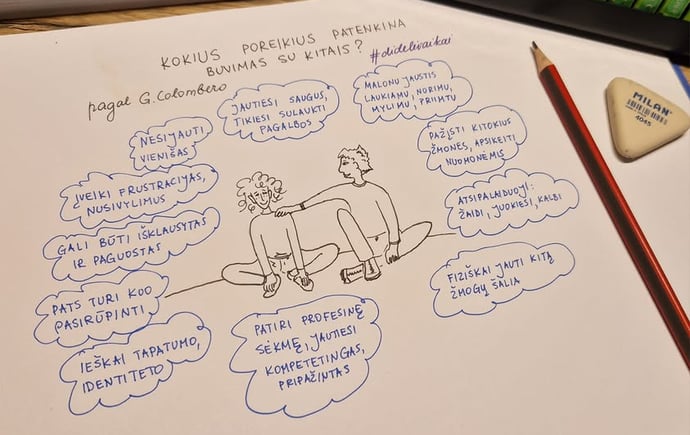 KOKIUS POREIKIUS PATENKINA
BUVIMAS SU KITAIS?
#didelivaikai
pagal G. Colombero
NESIJAUTI
VIENIŠAS
JAUTIESI SAUGUS,
TIKIESI SULAUKTI
PAGALBOS
MALONU JAUSTIS
LAUKIAMU, NORIMU,
MYLIMU, PRIIMTU
PAŽĮSTI KITOKIUS
ŽMONES, APSIKEITI
NUOMONĖMIS
ATSIPALAIDUOJI:
ŽAIDI, JUOKIESI, KALBI
FIZIŠKAI JAUTI KITĄ
ŽMOGŲ ŠALIA
ĮVEIKI FRUSTRACIJAS,
NUSIVYLIMUS
GALI BŪTI IŠKLAUSYTAS
IR PAGUOSTAS
PATS TURI KUO
PASIRŪPINTI
IEŠKAI TAPATUMO,
IDENTITETO
PATIRI PROFESINĘ
SĖKMĘ, JAUTIESI
KOMPETETINGAS,
PRIPAŽINTAS
MILAN
4045